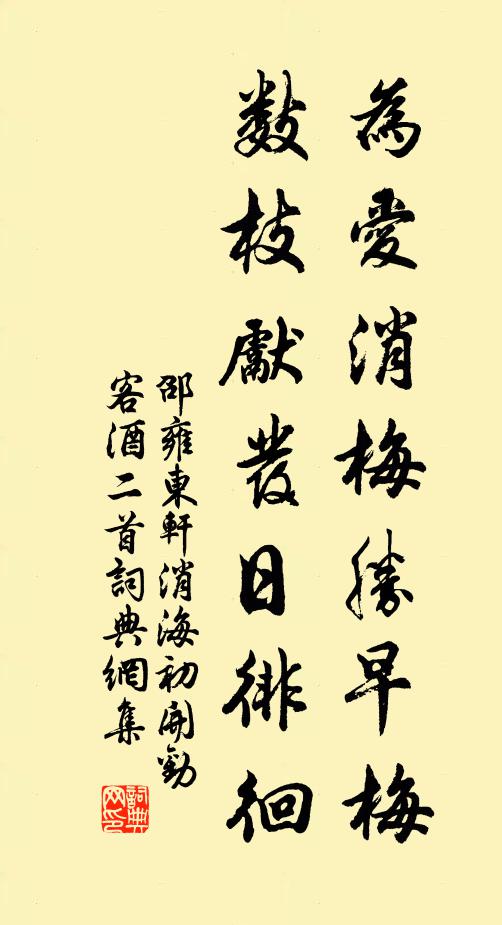 為愛消梅勝早梅
數枝獻發日徘徊
邵雍東軒消海初開勸
客酒二首詞典網集
詞典
网印